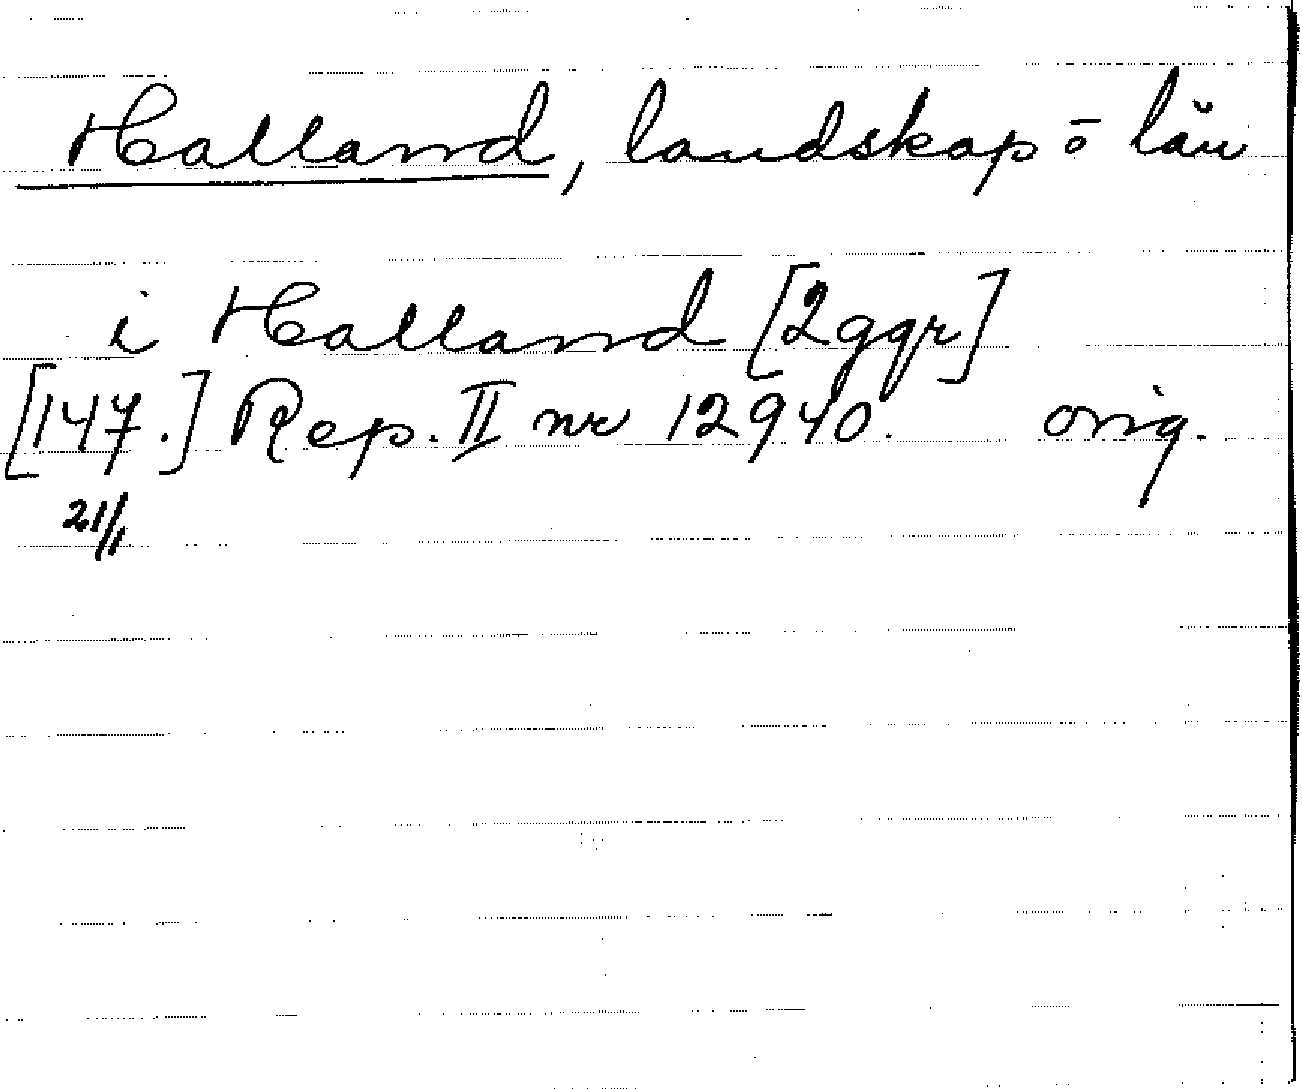 Halland, landskap o län
i Halland [2ggr]
[147.] Rep. II nr 12940. orig.
21/1